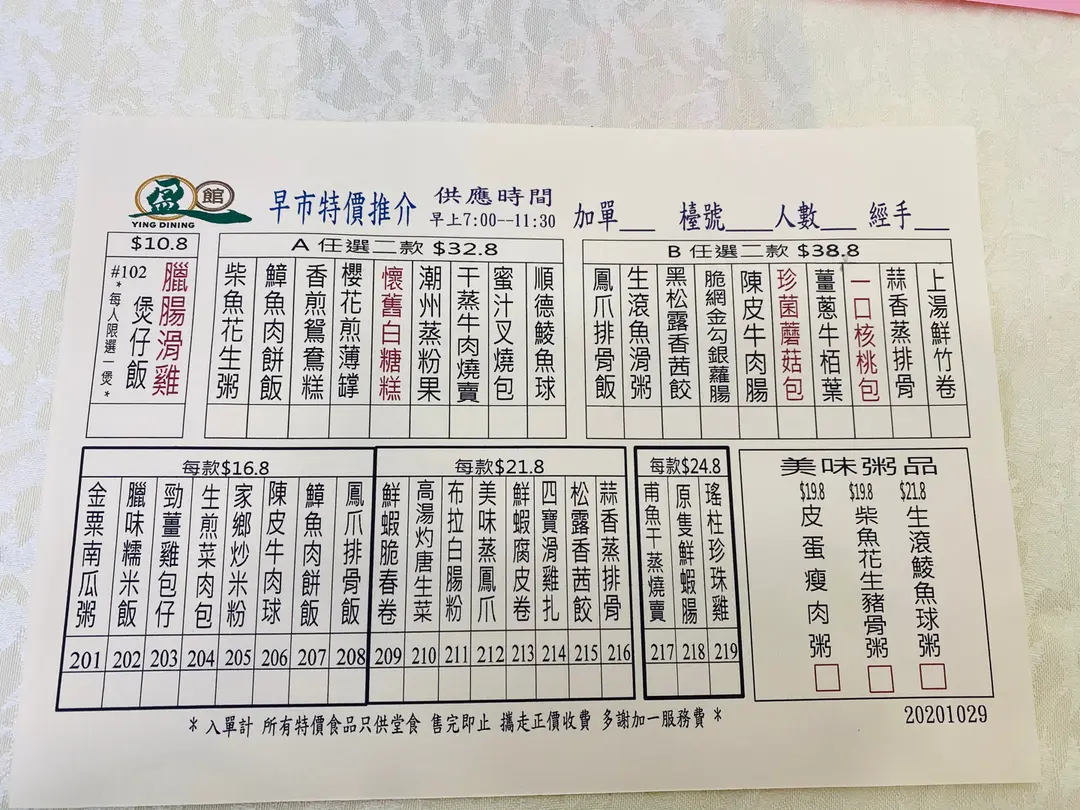 盈館
YING DINING
早市特價推介
供應時間
早上7:00--11:30
加單___ 檯號____人數___ 經手___
$10.8
#102
臘腸滑雞
煲仔飯
*每人限選一煲*
A 任選二款 $32.8
柴魚花生粥
鱆魚肉餅飯
香煎鴛鴦糕
櫻花煎薄罉
懷舊白糖糕
潮州蒸粉果
干蒸牛肉燒賣
蜜汁叉燒包
順德鯪魚球
B 任選二款 $38.8
鳳爪排骨飯
生滾魚滑粥
黑松露香茜餃
脆網金勾銀蘿腸
陳皮牛肉腸
珍菌蘑菇包
薑蔥牛栢葉
一口核桃包
蒜香蒸排骨
上湯鮮竹卷
每款$16.8
金粟南瓜粥 201
臘味糯米飯 202
勁薑雞包仔 203
生煎菜肉包 204
家鄉炒米粉 205
陳皮牛肉球 206
鱆魚肉餅飯 207
鳳爪排骨飯 208
每款$21.8
鮮蝦脆春卷 209
高湯灼唐生菜 210
布拉白腸粉 211
美味蒸鳳爪 212
鮮蝦腐皮卷 213
四寶滑雞扎 214
松露香茜餃 215
蒜香蒸排骨 216
每款$24.8
甫魚干蒸燒賣 217
原隻鮮蝦腸 218
瑤柱珍珠雞 219
美味粥品
$19.8 皮蛋瘦肉粥
$19.8 柴魚花生豬骨粥
$21.8 生滾鯪魚球粥
*入單計 所有特價食品只供堂食 售完即止 攜走正價收費 多謝加一服務費*
20201029